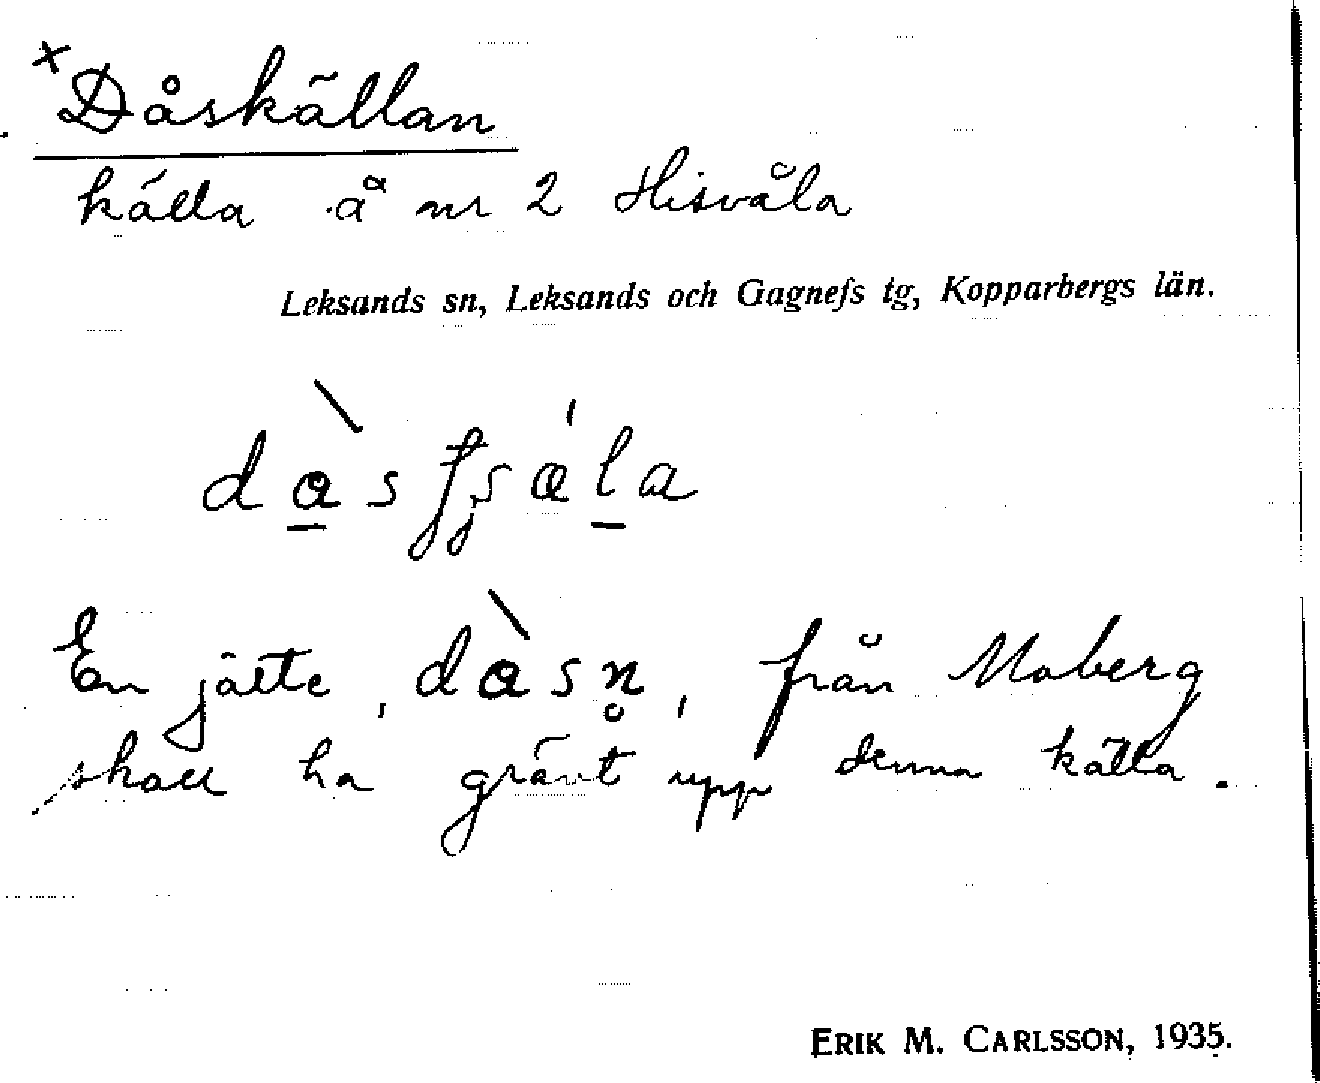 × Dåskällan
källa å nr 2 Hisvåla
Leksands sn, Leksands och Gagnefs tg, Kopparbergs län.
En jätte, från Moberg
skall ha grävt upp denna källa.
ERIK M. CARLSSON, 1935.